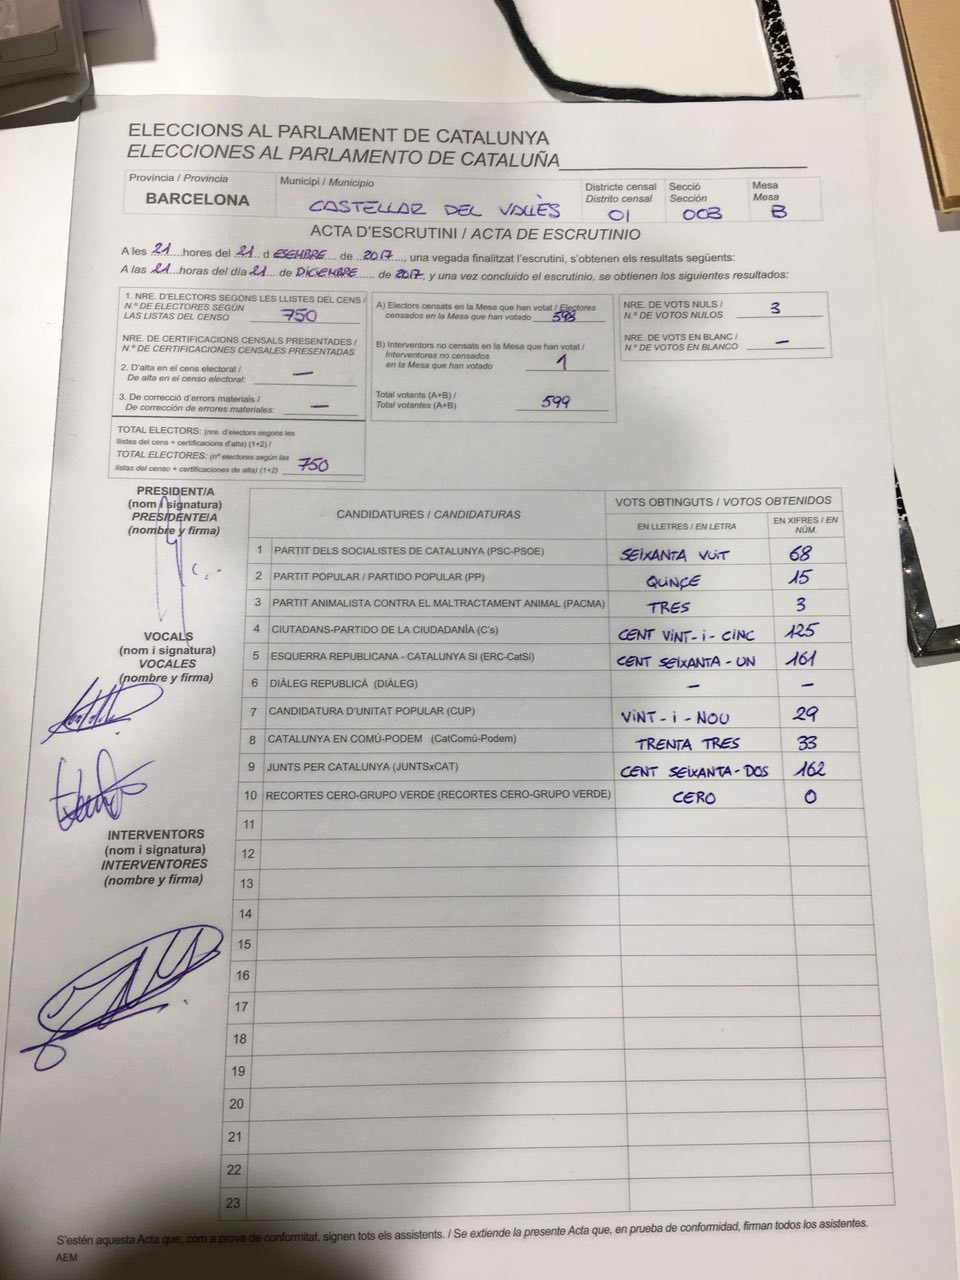 ELECCIONS AL PARLAMENT DE CATALUNYA
ELECCIONES AL PARLAMENTO DE CATALUÑA
Província / Provincia
BARCELONA
Municipi / Municipio
CASTELLAR DEL VALLÈS
Districte censal
Distrito censal
01
Secció
Sección
003
Mesa
Mesa
B
ACTA D'ESCRUTINI / ACTA DE ESCRUTINIO
A les 21 hores del 21 d ESEMBRE de 2017, una vegada finalitzat l'escrutini, s'obtenen els resultats següents:
A las 21 horas del día 21 de DICIEMBRE de 2017, y una vez concluido el escrutinio, se obtienen los siguientes resultados:
1. NRE. D'ELECTORS SEGONS LES LLISTES DEL CENS /
N.º DE ELECTORES SEGÚN
LAS LISTAS DEL CENSO 750
NRE. DE CERTIFICACIONS CENSALS PRESENTADES /
N.º DE CERTIFICACIONES CENSALES PRESENTADAS
2. D'alta en el cens electoral /
De alta en el censo electoral: —
3. De correcció d'errors materials /
De corrección de errores materiales: —
TOTAL ELECTORS: (nre. d'electors segons les
llistes del cens + certificacions d'alta) (1+2) /
TOTAL ELECTORES: (nº electores según las
listas del censo + certificaciones de alta) (1+2) 750
A) Electors censats en la Mesa que han votat / Electores
censados en la Mesa que han votado 598
B) Interventors no censats en la Mesa que han votat /
Interventores no censados
en la Mesa que han votado 1
Total votants (A+B) /
Total votantes (A+B) 599
NRE. DE VOTS NULS /
N.º DE VOTOS NULOS 3
NRE. DE VOTS EN BLANC /
N.º DE VOTOS EN BLANCO —
PRESIDENT/A
(nom i signatura)
PRESIDENTE/A
(nombre y firma)
VOCALS
(nom i signatura)
VOCALES
(nombre y firma)
INTERVENTORS
(nom i signatura)
INTERVENTORES
(nombre y firma)
CANDIDATURES / CANDIDATURAS
VOTS OBTINGUTS / VOTOS OBTENIDOS
EN LLETRES / EN LETRA
EN XIFRES / EN
NÚM.
1 PARTIT DELS SOCIALISTES DE CATALUNYA (PSC-PSOE) SEIXANTA VUIT 68
2 PARTIT POPULAR / PARTIDO POPULAR (PP) QUINÇE 15
3 PARTIT ANIMALISTA CONTRA EL MALTRACTAMENT ANIMAL (PACMA) TRES 3
4 CIUTADANS-PARTIDO DE LA CIUDADANÍA (C's) CENT VINT-I-CINC 125
5 ESQUERRA REPUBLICANA - CATALUNYA SI (ERC-CatSí) CENT SEIXANTA-UN 161
6 DIÀLEG REPUBLICÀ (DIÀLEG) — —
7 CANDIDATURA D'UNITAT POPULAR (CUP) VINT-I-NOU 29
8 CATALUNYA EN COMÚ-PODEM (CatComú-Podem) TRENTA TRES 33
9 JUNTS PER CATALUNYA (JUNTSxCAT) CENT SEIXANTA-DOS 162
10 RECORTES CERO-GRUPO VERDE (RECORTES CERO-GRUPO VERDE) CERO 0
11
12
13
14
15
16
17
18
19
20
21
22
23
S'estén aquesta Acta que, com a prova de conformitat, signen tots els assistents. / Se extiende la presente Acta que, en prueba de conformidad, firman todos los asistentes.
AEM